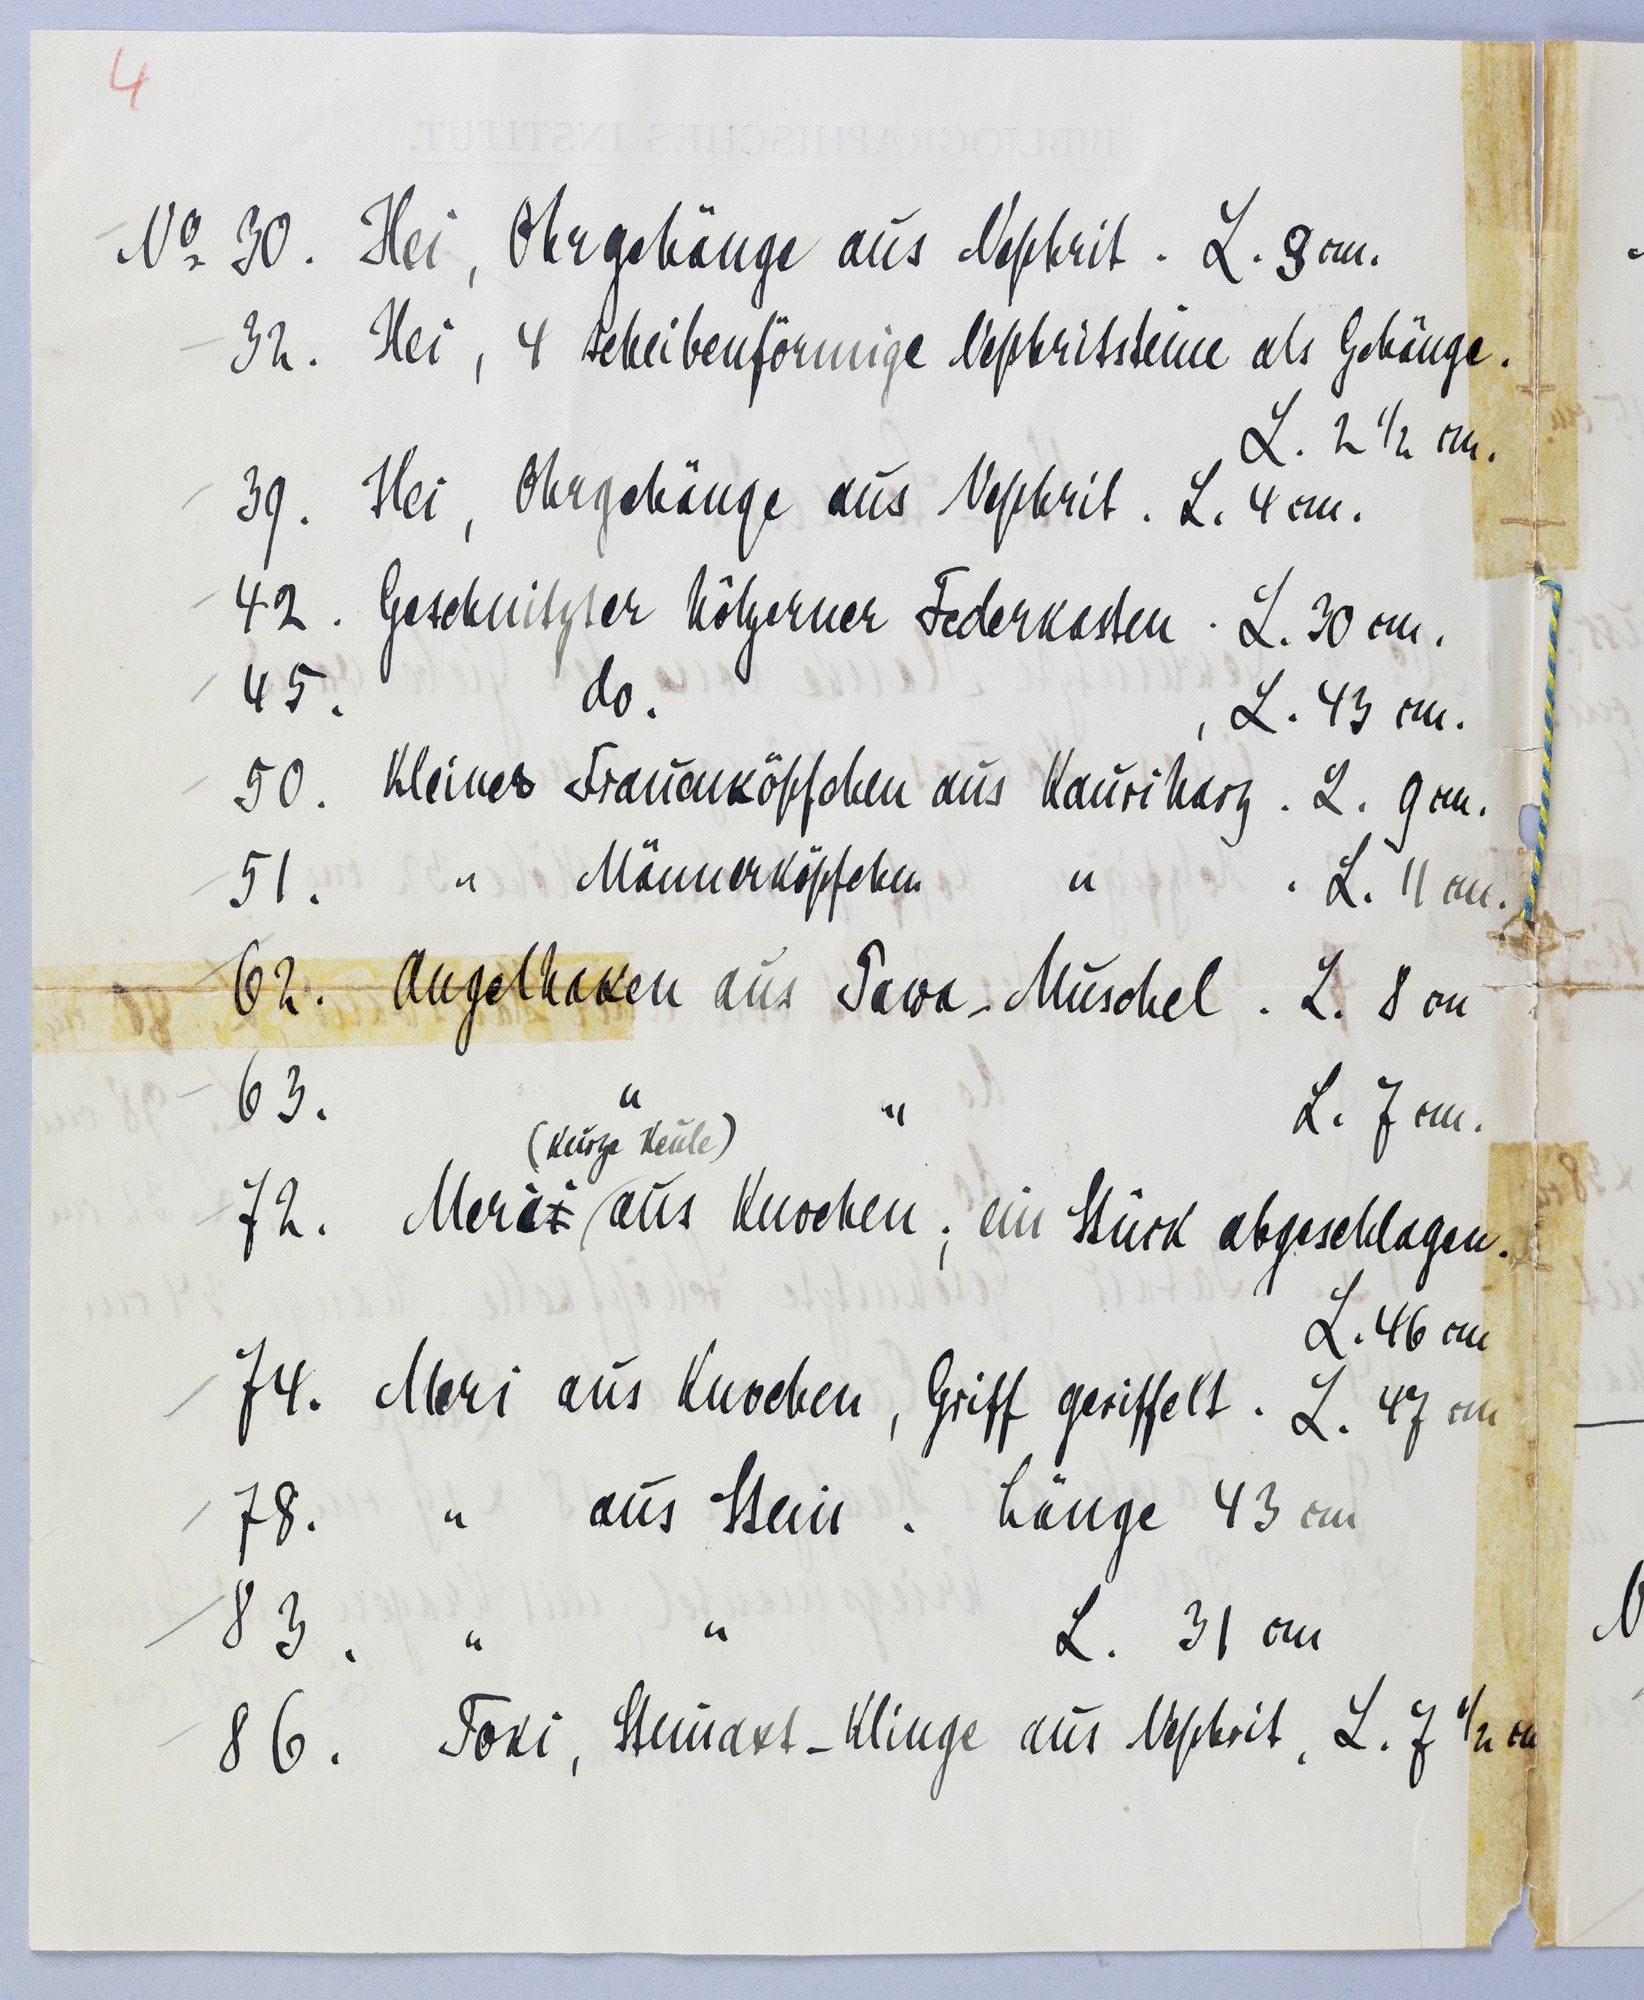 4
No 30. Hei, Ohrgehänge aus Nephrit. L. 9 cm.
32. Hei, 4 scheibenförmige Nephritsteine als Gehänge.
L. 2 1/2 cm.
39. Hei, Ohrgehänge aus Nephrit. L. 4 cm.
42. Geschnitzter hölzerner Federkasten. L. 30 cm.
45. do. , L. 43 cm.
50. Kleines Frauenköpfchen aus Kauriharz. L. 9 cm.
51. " Männerköpfchen " . L. 11 cm.
62. Angelhaken aus Pawa-Muschel. L. 8 cm
63. " " L. 7 cm.
(Kurze Keule)
72. Meri aus Knochen, ein Stück abgeschlagen.
L. 46 cm
74. Meri aus Knochen, Griff geriffelt. L. 47 cm
78. " aus Stein. Länge 43 cm
83. " " L. 31 cm
86. Toki, Steinaxt-Klinge aus Nephrit, L. 7 1/2 cm